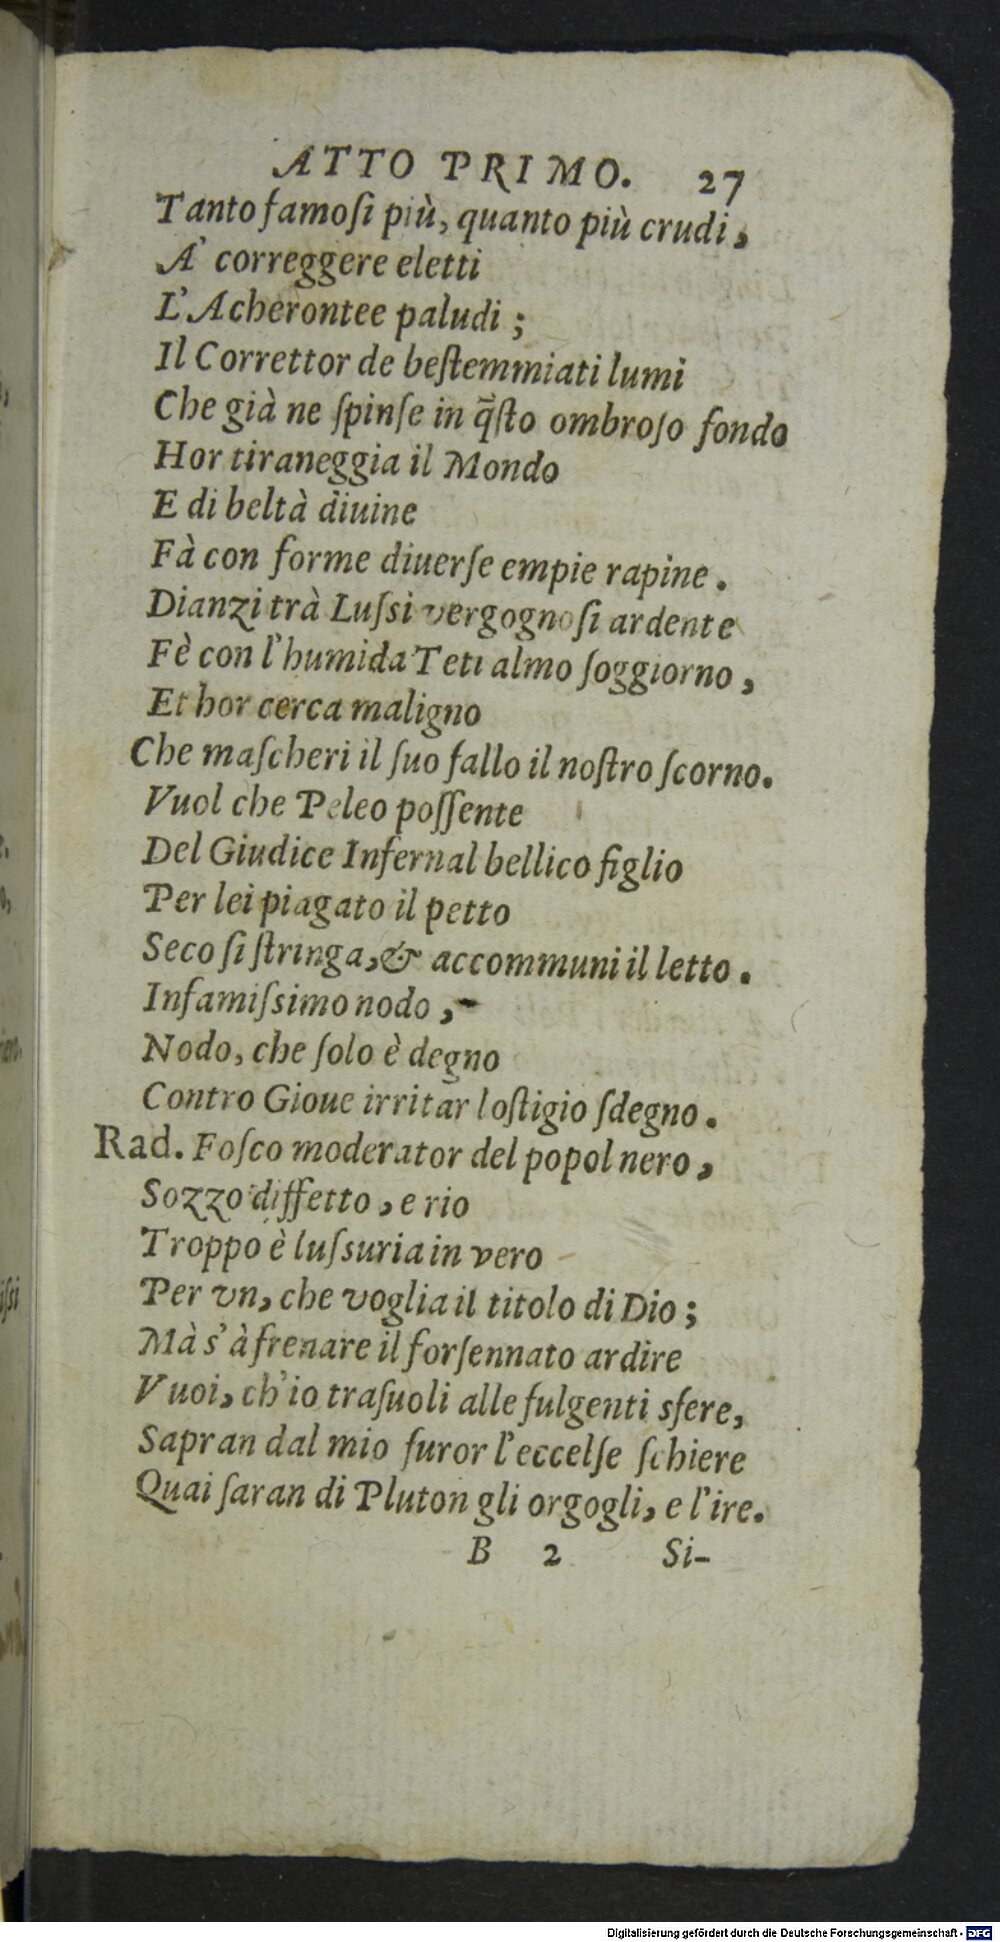 ATTO PRIMO. 27
Tanto famoſi più, quanto più crudi,
A' correggere eletti
L'Acherontee paludi;
Il Correttor de beſtemmiati lumi
Che già ne ſpinſe in q̃ſto ombroſo fondo
Hor tiraneggia il Mondo
E di beltà diuine
Fà con forme diuerſe empie rapine.
Dianzi trà Luſsi vergognoſi ardente
Fè con l'humida Teti almo ſoggiorno,
Et hor cerca maligno
Che maſcheri il ſuo fallo il noſtro ſcorno.
Vuol che Peleo poſſente
Del Giudice Infernal bellico figlio
Per lei piagato il petto
Seco ſi ſtringa, & accommuni il letto.
Infamiſsimo nodo,
Nodo, che ſolo è degno
Contro Gioue irritar loſtigio ſdegno.
Rad. Foſco moderator del popol nero,
Sozzo diffetto, e rio
Troppo è luſsuria in vero
Per vn, che voglia il titolo di Dio;
Mà s'à frenare il forſennato ardire
Vuoi, ch'io traſuoli alle fulgenti sfere,
Sapran dal mio furor l'eccelſe ſchiere
Quai ſaran di Pluton gli orgogli, e l'ire.
B 2 Si-
Digitalisierung gefördert durch die Deutsche Forschungsgemeinschaft - DFG